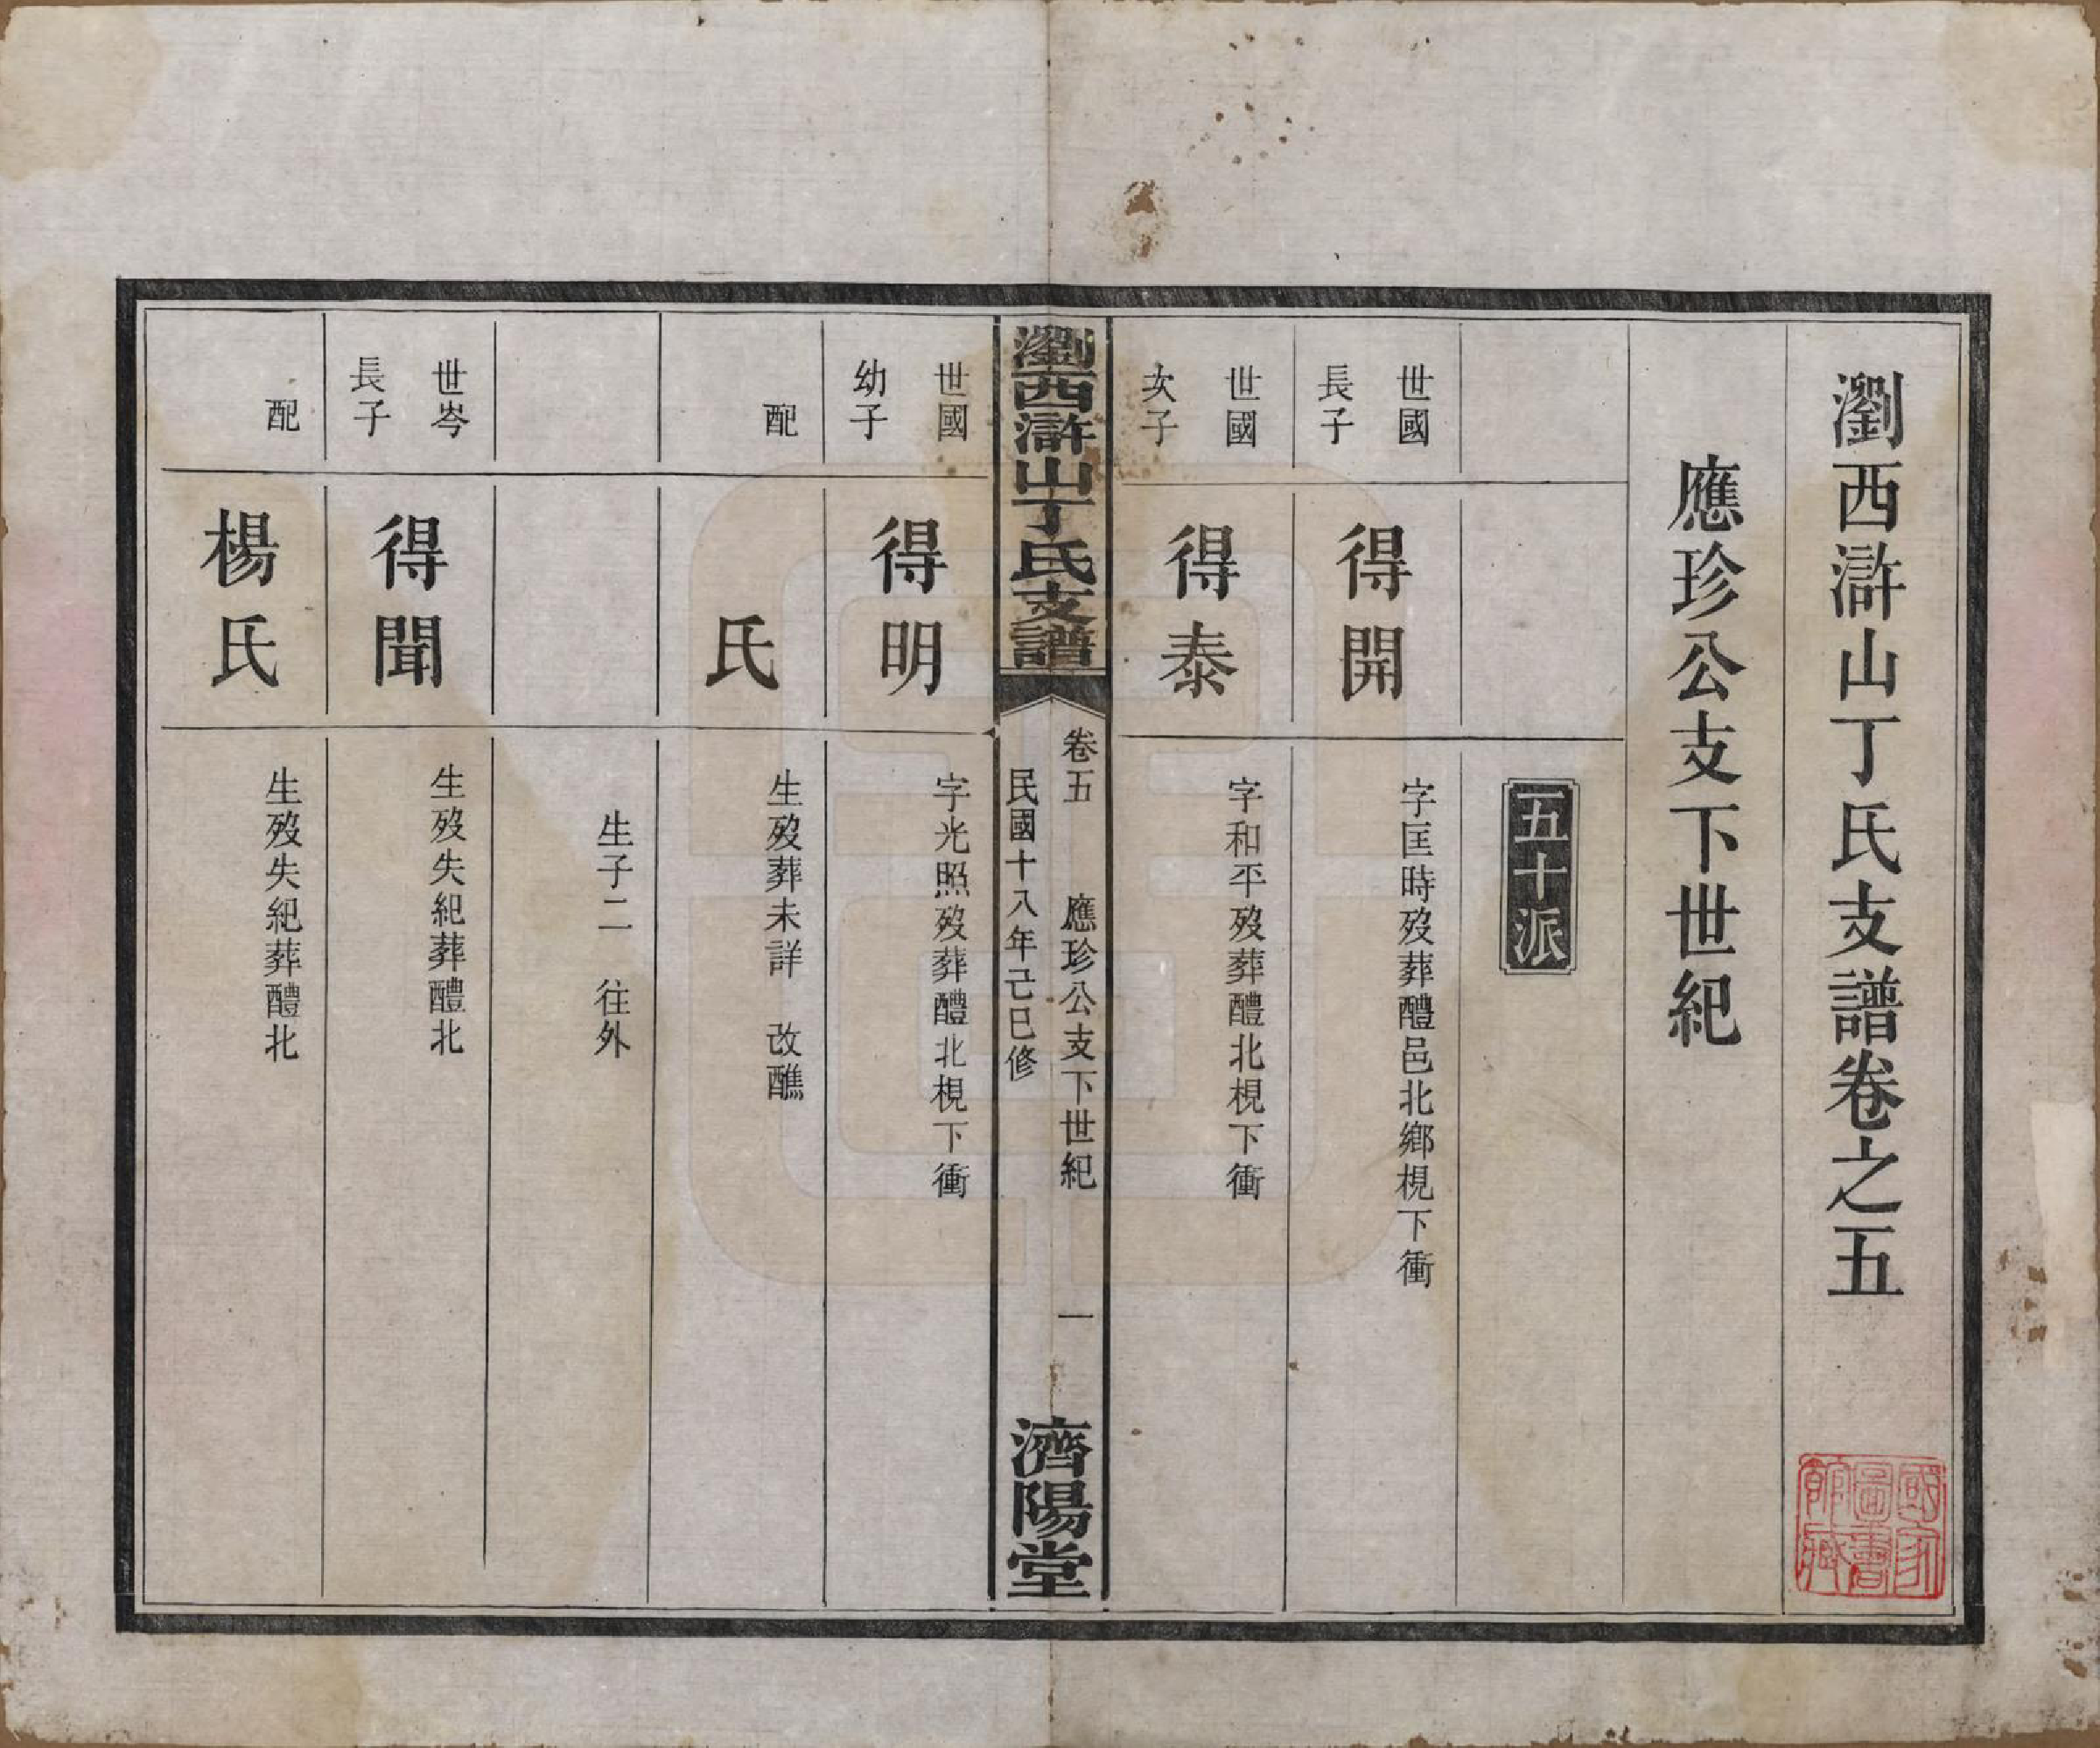 瀏西滸山丁氏支譜卷之五
應珍公支下世紀
五十派
世國
長子
得開
字匡時歿葬醴邑北鄉梘下衝
世國
次子
得泰
字和平歿葬醴北梘下衝
瀏西滸山丁氏支譜
卷五 應珍公支下世紀 一
民國十八年己巳修
濟陽堂
世國
幼子
得明
字光照歿葬醴北梘下衝
配
氏
生歿葬未詳 改醮
生子二 往外
世岑
長子
得聞
生歿失紀葬醴北
配
楊氏
生歿失紀葬醴北
國家
圖書
館藏